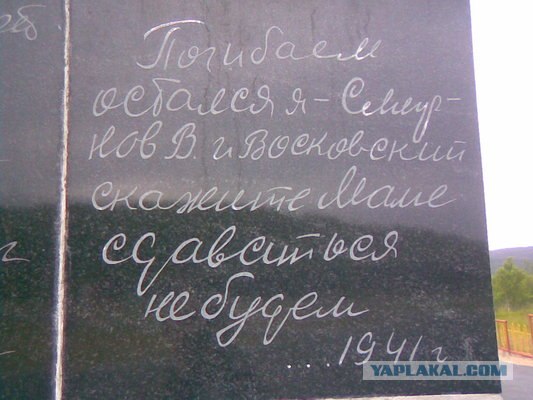 Погибаем
остался я - Смир-
нов В. и Восковский
скажите Маме
сдаваться
не будем
....1941 г
YAPLAKAL.COM